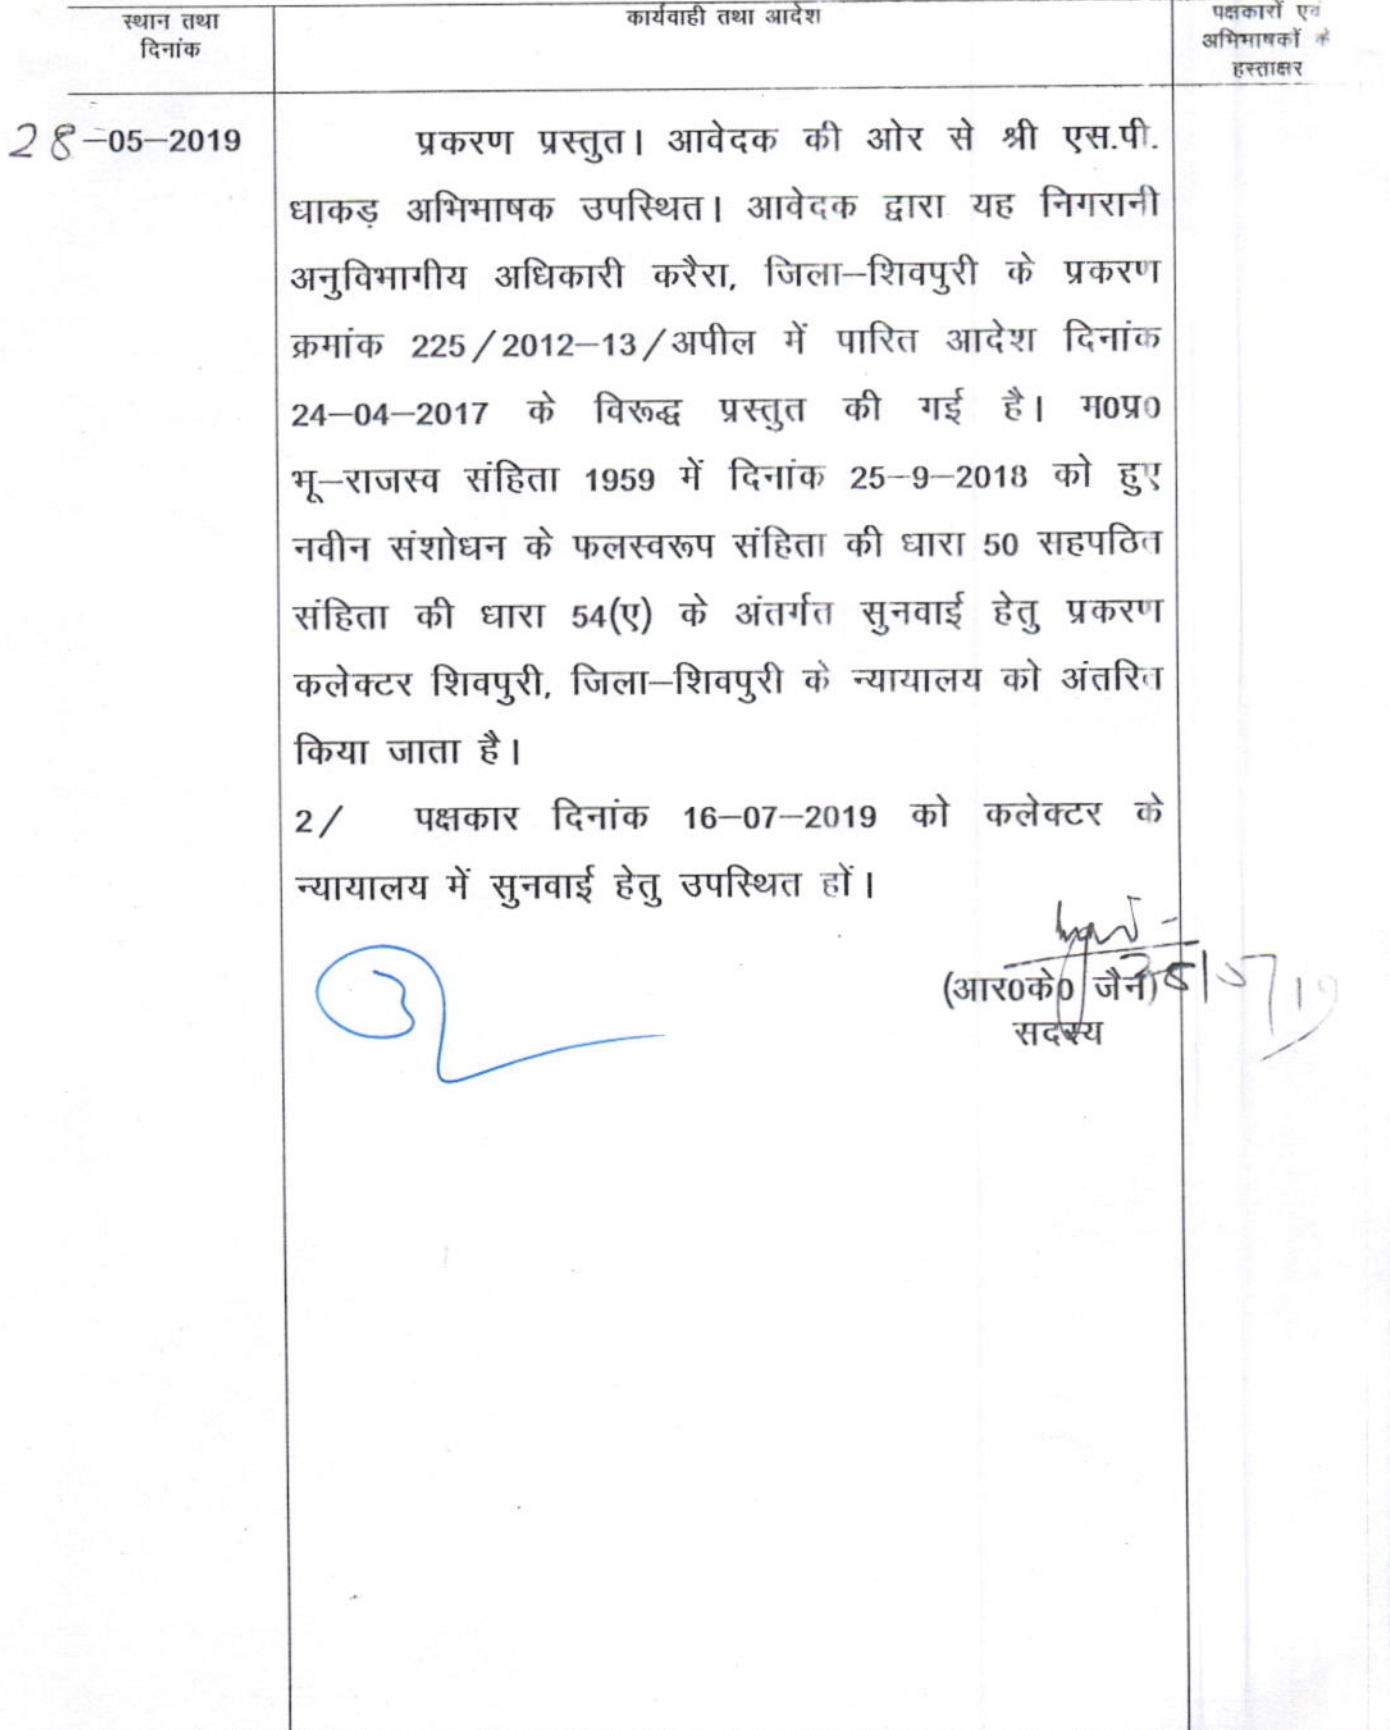 स्थान तथा
दिनांक
कार्यवाही तथा आदेश
पक्षकारों एवं
अभिभाषकों के
हस्ताक्षर
28-05-2019
प्रकरण प्रस्तुत। आवेदक की ओर से श्री एस.पी.
धाकड़ अभिभाषक उपस्थित। आवेदक द्वारा यह निगरानी
अनुविभागीय अधिकारी करैरा, जिला-शिवपुरी के प्रकरण
क्रमांक 225/2012-13/अपील में पारित आदेश दिनांक
24-04-2017 के विरूद्ध प्रस्तुत की गई है। म0प्र0
भू-राजस्व संहिता 1959 में दिनांक 25-9-2018 को हुए
नवीन संशोधन के फलस्वरूप संहिता की धारा 50 सहपठित
संहिता की धारा 54(ए) के अंतर्गत सुनवाई हेतु प्रकरण
कलेक्टर शिवपुरी, जिला-शिवपुरी के न्यायालय को अंतरित
किया जाता है।
2/ पक्षकार दिनांक 16-07-2019 को कलेक्टर के
न्यायालय में सुनवाई हेतु उपस्थित हों।
(आर0के0 जैन)
सदस्य